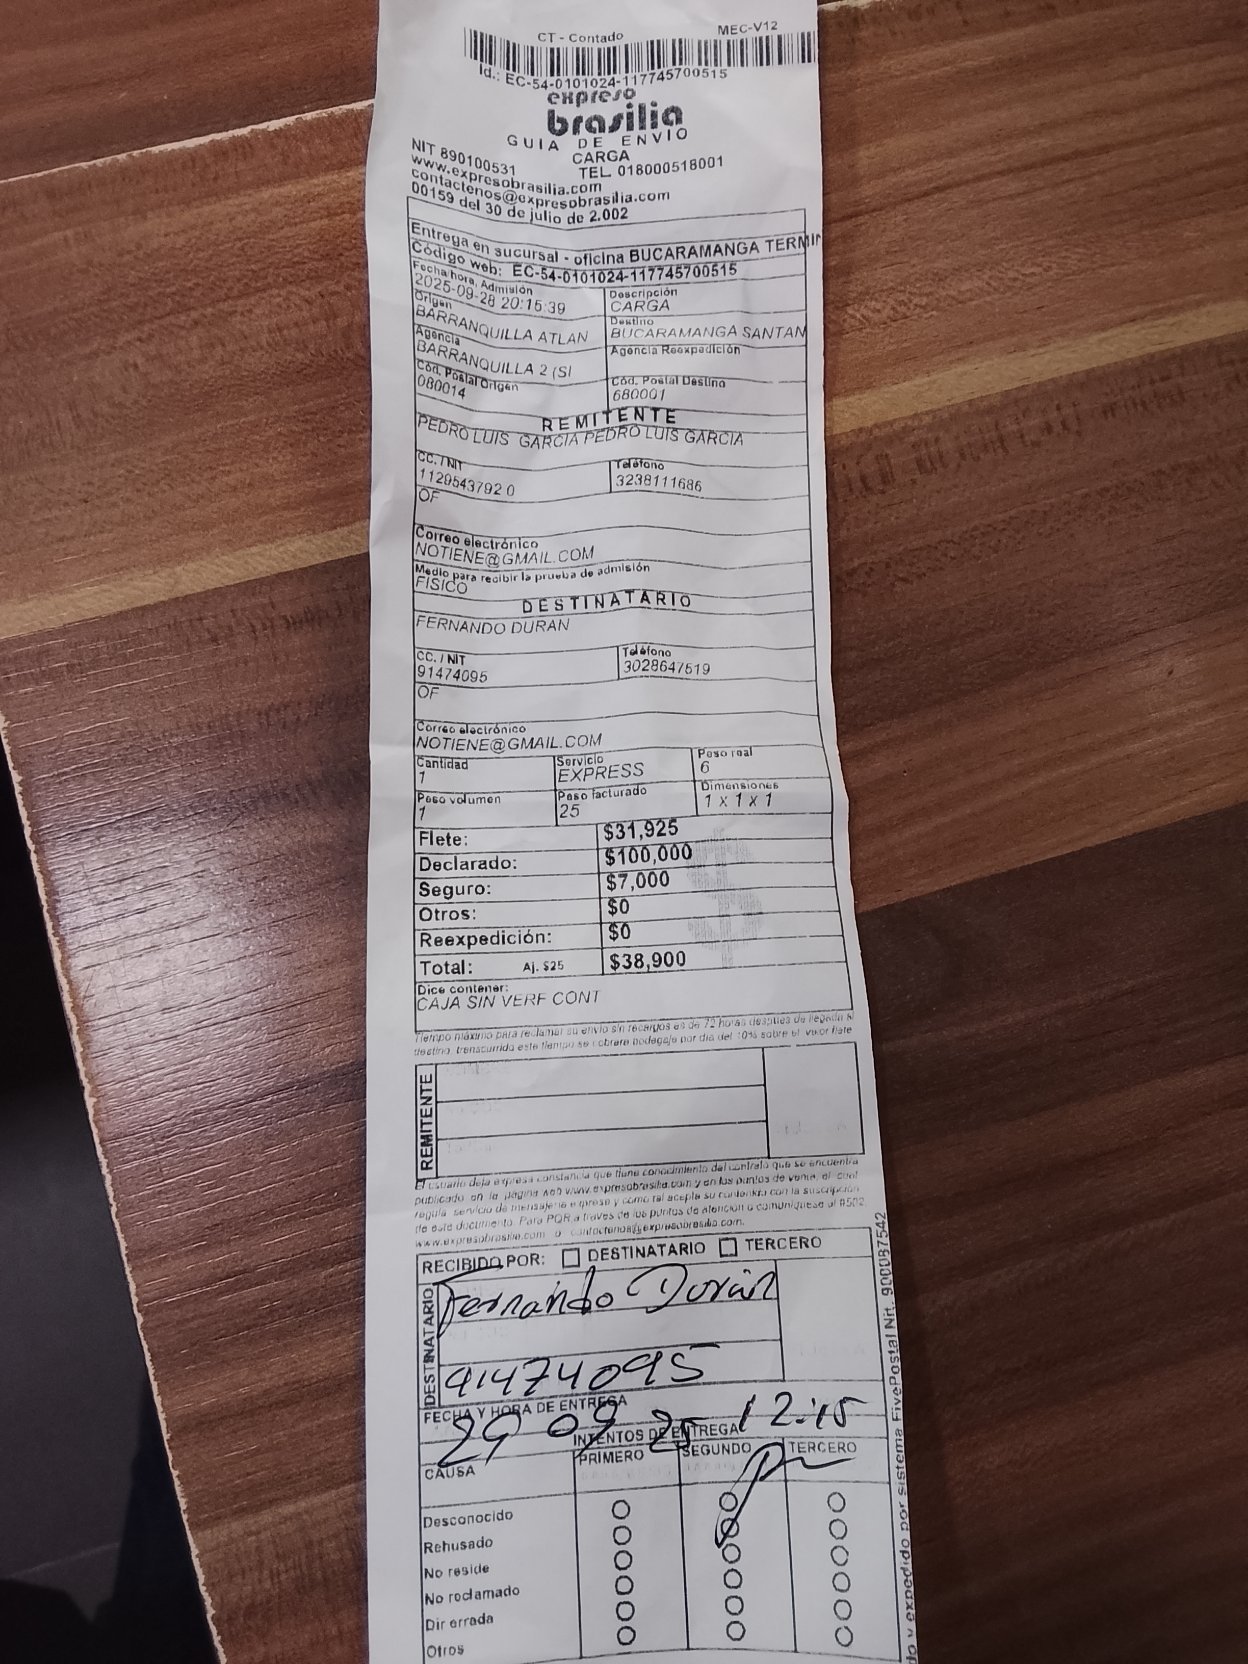 CT - Contado MEC-V12
Id.: EC-54-0101024-117745700515
expreso
brasilia
GUIA DE ENVIO
NIT 890100531 CARGA
www.expresobrasilia.com TEL. 018000518001
contactenos@expresobrasilia.com
00159 del 30 de julio de 2.002
Entrega en sucursal - oficina BUCARAMANGA TERMI
Código web: EC-54-0101024-117745700515
Fecha hora. Admisión Descripción
2025-09-28 20:15:39 CARGA
Origen Destino
BARRANQUILLA ATLAN BUCARAMANGA SANTAN
Agencia Agencia Reexpedición
BARRANQUILLA 2 (SI
Cód. Postal Origen Cód. Postal Destino
080014 680001
REMITENTE
PEDRO LUIS GARCIA PEDRO LUIS GARCIA
CC. / NIT Teléfono
1129543792 0 3238111686
OF
Correo electrónico
NOTIENE@GMAIL.COM
Medio para recibir la prueba de admisión
FISICO
DESTINATARIO
FERNANDO DURAN
CC. / NIT Teléfono
91474095 3028647519
OF
Correo electrónico
NOTIENE@GMAIL.COM
Cantidad Servicio Peso real
1 EXPRESS 6
Peso volumen Peso facturado Dimensiones
1 25 1 x 1 x 1
Flete: $31,925
Declarado: $100,000
Seguro: $7,000
Otros: $0
Reexpedición: $0
Total: Aj. $25 $38,900
Dice contener:
CAJA SIN VERF CONT
Tiempo máximo para reclamar su envío sin recargos es de 72 horas después de llegada al
destino, transcurrido este tiempo se cobrara bodegaje por día del 10% sobre el valor flete
REMITENTE
El usuario deja expresa constancia que tiene conocimiento del contrato que se encuentra
publicado en la página web www.expresobrasilia.com y en los puntos de venta, el cual
regula servicio de mensajería expresa y como tal acepta su contenido con la suscripción
de este documento. Para PQR a traves de los puntos de atencion o comuniquese al #502,
www.expresobrasilia.com o contactenos@expresobrasilia.com.
RECIBIDO POR: DESTINATARIO TERCERO
DESTINATARIO
Fernando Durán
91474095
FECHA Y HORA DE ENTREGA
29 09 25 12:15
INTENTOS DE ENTREGA
CAUSA PRIMERO SEGUNDO TERCERO
Desconocido
Rehusado
No reside
No reclamado
Dir errada
Otros
do y expedido por sistema FivePostal Nit. 900087542